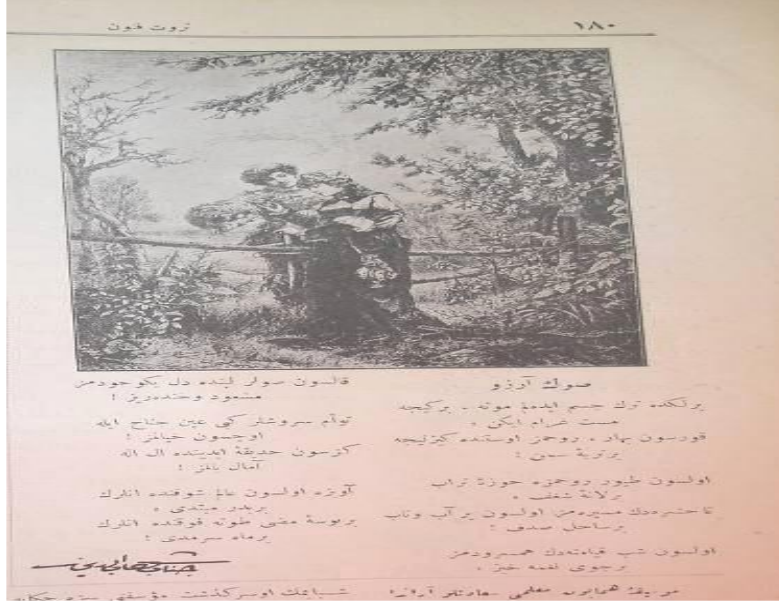 ١٨٠
ثروت فنون
صوك آرزو
برلكده ترك جسم ايده‌لم موته ، بركيجه
مست غرام ايكن ،
قورسون بهار ، روحمز اوستنده كيزليجه
بر تربهٔ سمن !
اولسون طيور روحمزه حوزهٔ تراب
بر لانهٔ شغف ،
تا حشره‌دك مسيره‌مز اولسون پر آب وتاب
بر ساحل صدف !
اولسون شب قيامته‌دك همسرودمز
بر جوى نغمه خيز ،
قالسون سولر لبنده دل يكوجودمز
مسعود وخنده‌ريز !
توأم سروشلر كبى عين جناح ايله
اوچسون خيالمز !
كزسون حديقهٔ ابديتده ال اله
آمال بالمز !
آويزه اولسون عالم شوقنده انلرك
بر بدر مبتدى ،
بر بوسهٔ مضى طوته فوقنده انلرك
بر ماه سرمدى !
جناب شهاب الدين
موسيقهٔ همايون معلمى سعادتلو آراندا
شبابتك اوسركذشت مؤسفى سزه حكايه